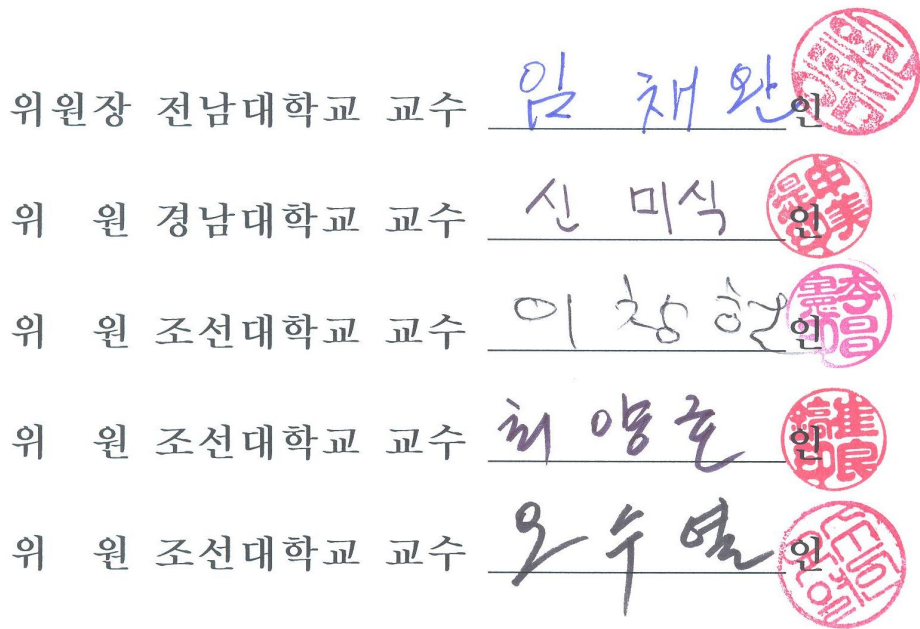 위원장 전남대학교 교수 임채완 인
위 원 경남대학교 교수 신미식 인
위 원 조선대학교 교수 이창헌 인
위 원 조선대학교 교수 최양호 인
위 원 조선대학교 교수 오수열 인